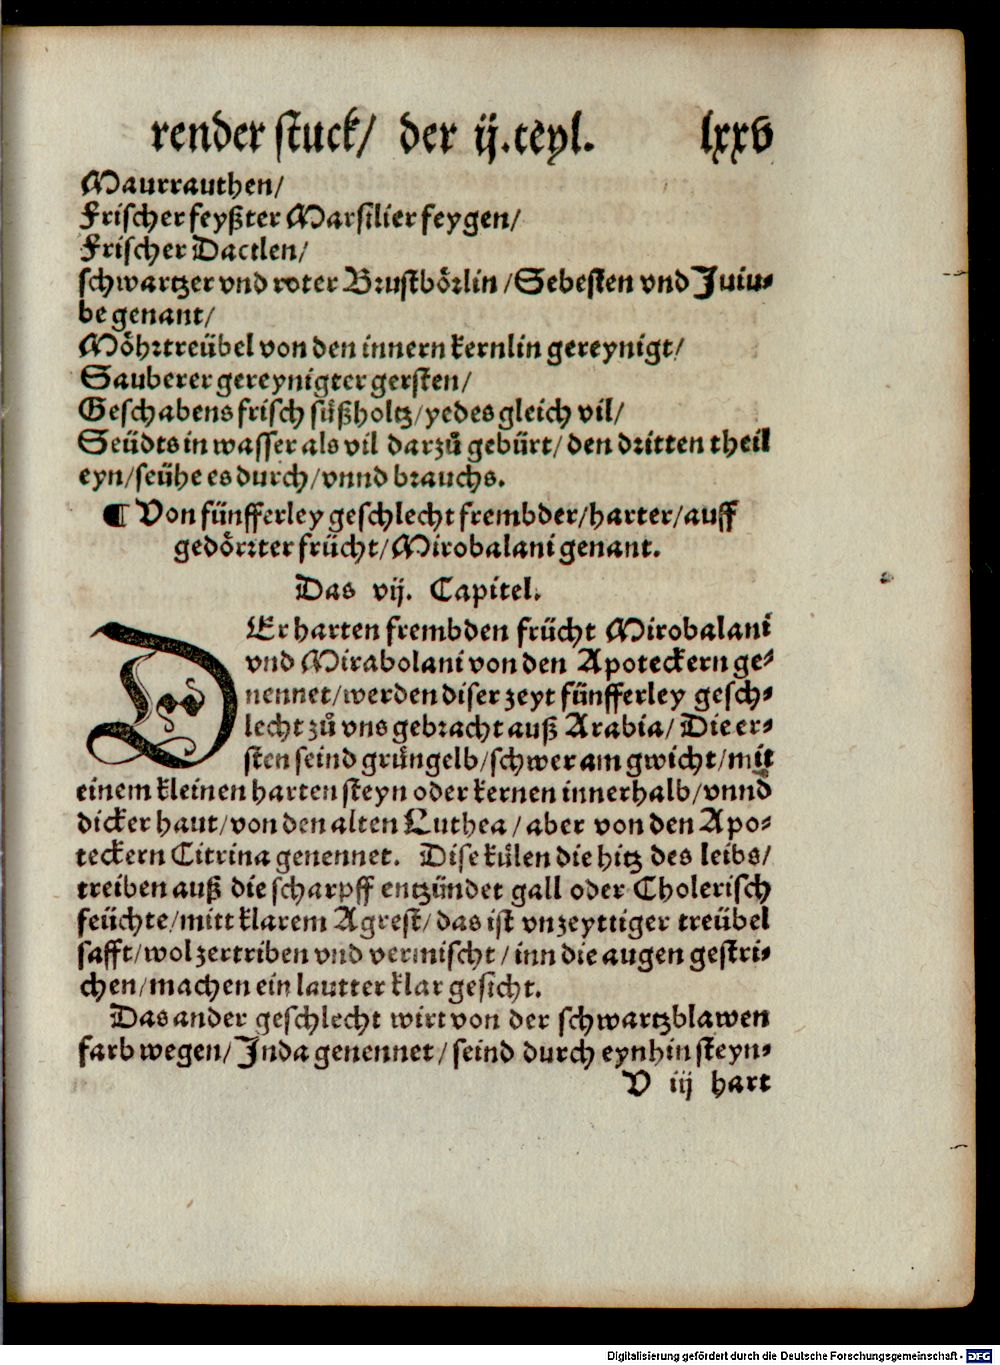 render stuck/ der ij.teyl. lxxv
Maurrauthen/
Frischer feyßter Marsilier feygen/
Frischer Dactlen/
schwartzer vnd roter Brustbörlin/Sebesten vnd Juiu-
be genant/
Möhrtreübel von den innern kernlin gereynigt/
Sauberer gereynigter gersten/
Geschabens frisch süßholtz/yedes gleich vil/
Seüdts in wasser als vil darzů gebürt/den dritten theil
eyn/seühe es durch/vnnd brauchs.
¶ Von fünfferley geschlecht frembder/harter/auff
gedörrter frücht/Mirobalani genant.
Das vij. Capitel.
DEr harten frembden frücht Mirobalani
vnd Mirabolani von den Apoteckern ge-
nennet/werden diser zeyt fünfferley gesch-
lecht zů vns gebracht auß Arabia/Die er-
sten seind grüngelb/schwer am gwicht/mit
einem kleinen harten steyn oder kernen innerhalb/vnnd
dicker haut/von den alten Luthea/aber von den Apo-
teckern Citrina genennet. Dise külen die hitz des leibs/
treiben auß die scharpff entzündet gall oder Cholerisch
feüchte/mitt klarem Agrest/das ist vnzeyttiger treübel
safft/wol zertriben vnd vermischt/inn die augen gestri-
chen/machen ein lautter klar gesicht.
Das ander geschlecht wirt von der schwartzblawen
farb wegen/Inda genennet/seind durch eynhin steyn-
V iij hart
Digitalisierung gefördert durch die Deutsche Forschungsgemeinschaft - DFG